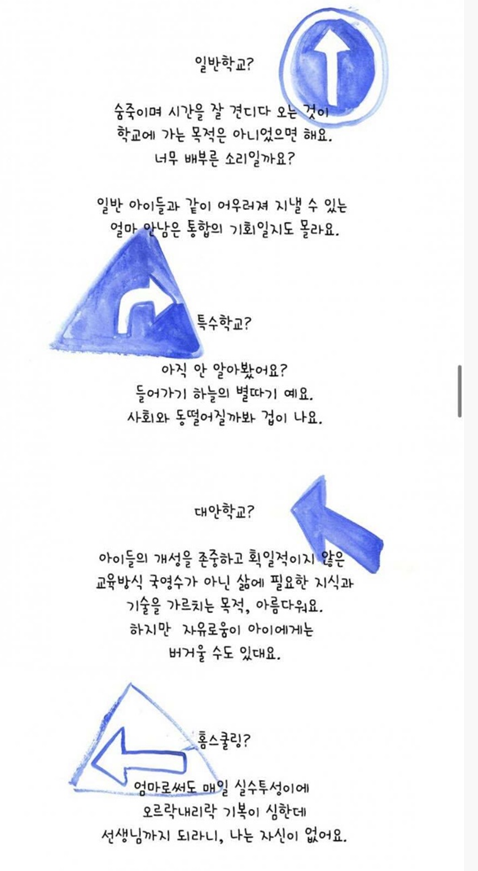 일반학교?
숨죽이며 시간을 잘 견디다 오는 것이
학교에 가는 목적은 아니었으면 해요.
너무 배부른 소리일까요?
일반 아이들과 같이 어우러져 지낼 수 있는
얼마 안남은 통합의 기회일지도 몰라요.
특수학교?
아직 안 알아봤어요?
들어가기 하늘의 별따기 예요.
사회와 동떨어질까봐 겁이 나요.
대안학교?
아이들의 개성을 존중하고 획일적이지 않은
교육방식 국영수가 아닌 삶에 필요한 지식과
기술을 가르치는 목적, 아름다워요.
하지만 자유로움이 아이에게는
버거울 수도 있대요.
홈스쿨링?
엄마로써도 매일 실수투성이에
오르락내리락 기복이 심한데
선생님까지 되라니, 나는 자신이 없어요.